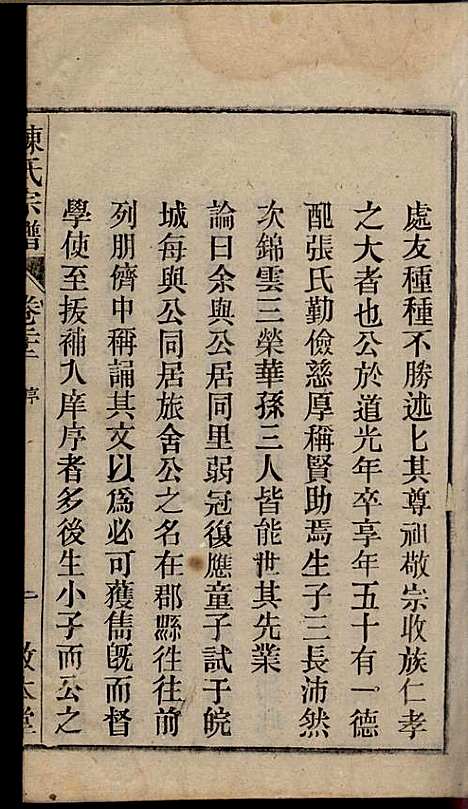 處友種種不勝述匕其尊祖敬宗收族仁孝
之大者也公於道光年卒享年五十有一德
配張氏勤儉慈厚稱賢助焉生子三長沛然
次錦雲三榮華孫三人皆能世其先業
論曰余與公居同里弱冠復應童子試于皖
城每與公同居旅舍公之名在郡縣往往前
列朋儕中稱誦其文以為必可獲雋旣而督
學使至扳補入庠序者多後生小子而公之
陳氏宗譜
卷